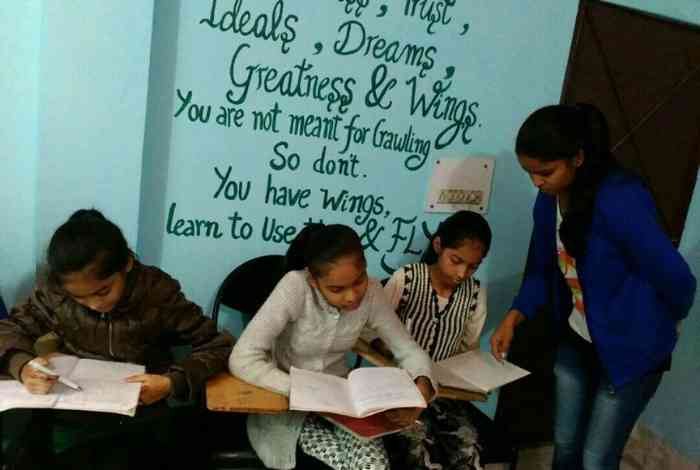 Trust,
Ideals, Dreams,
Greatness & Wings.
You are not meant for Crawling
So don't.
You have wings,
learn to Use & FLY